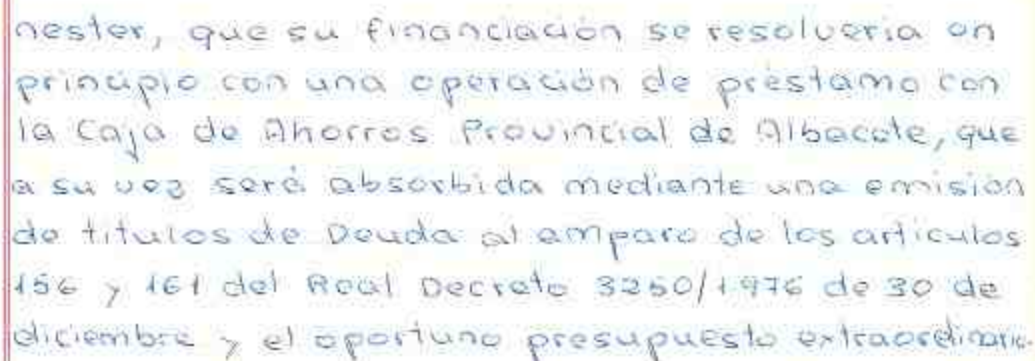 nester, que su financiación se resolveria en
principio con una operación de préstamo con
la Caja de Ahorros Provincial de Albacete, que
a su vez será absorbida mediante una emisión
de titulos de Deuda al amparo de los articulos
156 y 161 del Real Decreto 3250/1976 de 30 de
diciembre y el oportuno presupuesto extraordinario